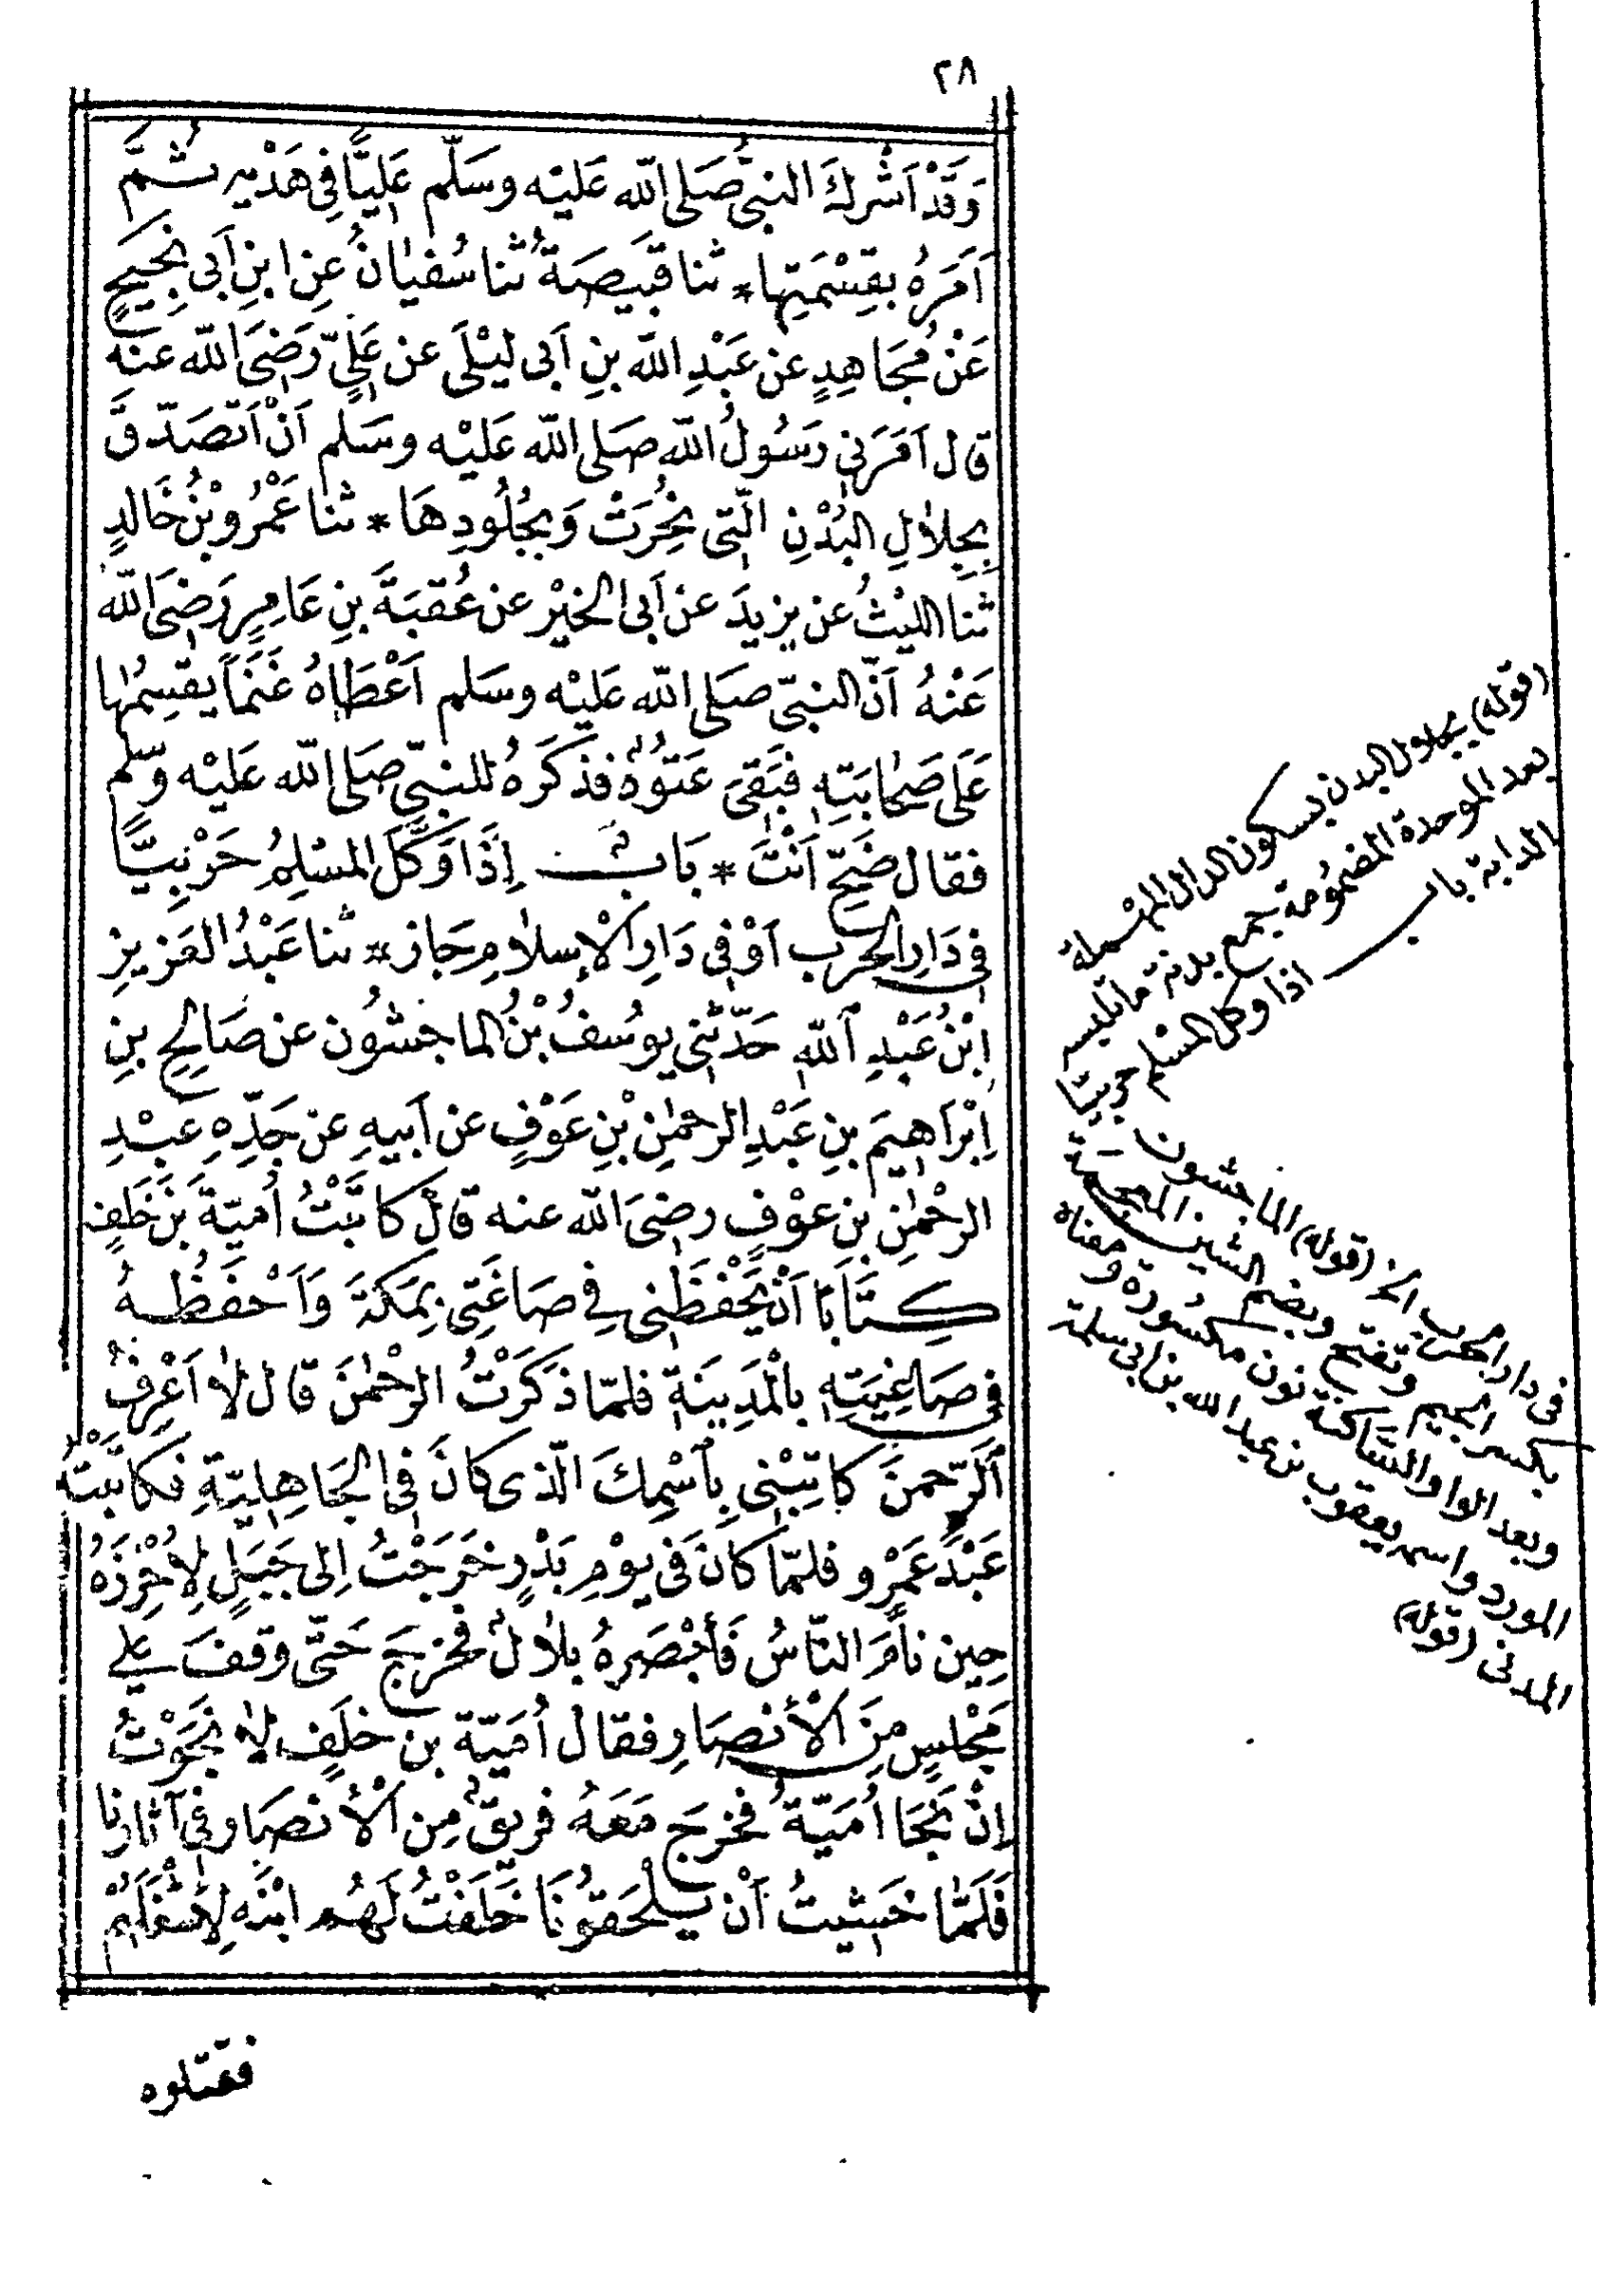 ٢٨
وَقَدْ اَشْرَكَ النبىُّ صَلى الله عَليْه وسَلَّم عَلِيًّا فِى هَدْيِه ثُمَّ
اَمَرَهُ بقِسْمَتِها * ثنا قَبيصَةُ ثنا سُفيٰانُ عِن ابنِ اَبى نجِيحٍ
عَنْ مُجَاهِدٍ عن عَبْدِ الله بنِ اَبى ليْلَى عن عَلىٍّ رَضىَ الله عنه
قال اَمَرَنى رَسُولُ الله صَلى الله عَليْه وسَلم اَنْ اَتصَدّقَ
بجِلاٰلِ البُدْنِ الّتِى نُحِرَتْ وَبجُلُودِهَا * ثنا عَمْرُو بْنُ خَالدٍ
ثنا الليْثُ عن يزيدَ عن اَبى الخيْر عن عُقبَةَ بنِ عَامِرٍ رَضىَ الله
عَنْهُ اَنّ النبىّ صَلى الله عَليْه وسَلم اَعْطَاهُ غَنَمَاً يقسِمُهٰا
عَلى صَحٰابَتِهِ فبَقِىَ عَتوُدٌ فذكَرَهُ للنبىِّ صَلى الله عَليْه وَسّلم
فقال ضَحِّ اَنْتَ * بَابٌ إِذَا وَكَّلَ المسْلِمُ حَرْبِيًّا
فى دَارِ الحَرب اَوْ فِى دَارِ الْإِسلاٰمِ جَاز * ثنا عَبْدُ العَزيزِ
اِبْنُ عَبْدِ ٱلله حَدّثنى يوسُفُ بْنُ الماجِشُون عن صَالحِ بنِ
اِبْرَاهيمَ بنِ عَبْدِ الرحمٰنِ بْنِ عَوْفٍ عن اَبيهِ عن جَدِّهِ عَبْدِ
الرحْمٰنِ بنِ عوْفٍ رضىَ الله عنه قال كاتَبْتُ اُميّةَ بْنَ خَلفٍ
كِتَابًا اَنْ يَحْفَظَنى فى صَاغيَتى بِمَكةَ وَاَحْفَظَهُ
فى صَاغِيَتِهِ بالْمَدِينَةِ فلمّا ذكَرْتُ الرحْمٰنَ قال لاٰ اَعْرِفُ
ٱلرّحمنَ كاتِبْنى بِاْسْمِكَ الّذى كانَ فى الجَاهِليّةِ فكاتَبْتُهُ
عَبْدُ عَمْرٍو فلمّا كانَ فى يوْمِ بَدْرٍ خرَجْتُ اِلى جَبَلٍ لِأُحْرِزَهُ
حِين نامَ النّاسُ فَأبْصَرهُ بلاٰلٌ فخرَج حَتّى وقفَ على
مَجْلِسٍ مِنَ الْأنصَارِ فقال اُمَيّة بن خلَفٍ لاٰ نجَوْتُ
اِنْ نَجَا اُمَيّةُ فخرَج مَعَهُ فريقٌ مِن اْلْأنصَارِ فى آثارنا
فَلَمّا خَشيتُ اَنْ يَلْحَقوُنَا خَلفْتُ لَهُم ابْنَه لِأشغَلَهُمْ
فقتلوه
(قوله) بجلال البدن بسكون الدال المهْملة
بعد الموحدة المضمُومة جمع بدنة ماتليسه
الدابة باب اذا وكل المسْلم حربيّا
فى دار الحرب الخ (قوله) الماجشون
بكسر الجيم وتفتح وبضم الشين المعجَمَة
وبعد الواو السّاكنة نون مكسُورة ومعناه
المورد واسمه يعقوب بن عبد الله بن ابى سلمة
المدنى (قوله)